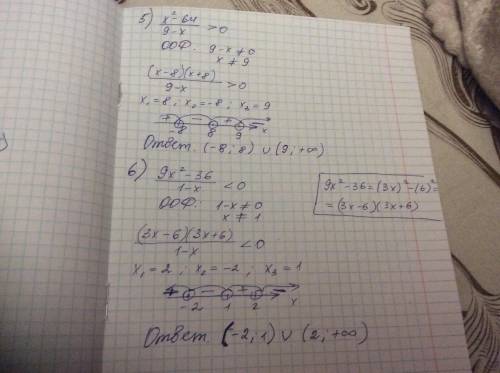 5) x²-64 / 9-x > 0
ООФ: 9-x≠0
x≠9
(x-8)(x+8) / 9-x > 0
x₁=8; x₂=-8; x₃=9
+ - + -
-8 8 9 x
Ответ. (-8; 8) ∪ (9; +∞)
6) 9x²-36 / 1-x < 0
ООФ: 1-x≠0
x≠1
9x²-36=(3x)²-(6)²=
=(3x-6)(3x+6)
(3x-6)(3x+6) / 1-x < 0
x₁=2; x₂=-2; x₃=1
+ - + -
-2 1 2 x
Ответ. (-2; 1) ∪ (2; +∞)